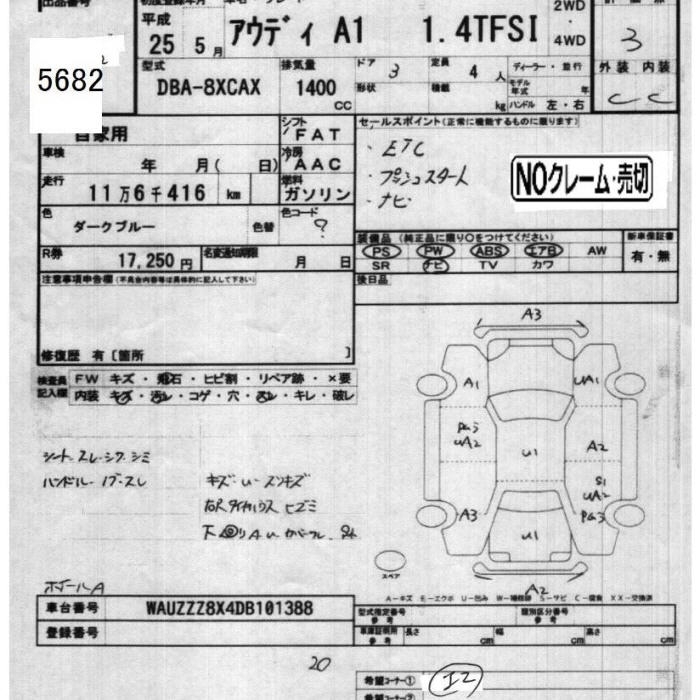 出品番号
初度登録年月
2WD
・
4WD
平成
25 5月
アウディ A1 1.4TFSI
3
5682
型式
DBA-8XCAX
排気量
1400
CC
ドア
3
定員
4 人
ディーラー・並行
形状
積載
kg
モデル年式
年
ハンドル 左・右
外装 内装
C C
自家用
シフト
FAT
セールスポイント(正常に機能するものに限ります)
・ETC
・プッシュスタート
・ナビ
車検
年 月( 日)
冷房
AAC
NOクレーム・売切
走行
11万6千416 km
燃料
ガソリン
色
ダークブルー
色替
色コード
?
R券
17,250円
名変通知期限
月 日
装備品 (純正品に限り○をつけてください)
PS PW ABS エアB AW
SR ナビ TV カワ
新車保証書
有・無
注意事項申告欄(不具合内容等は具体的に記入して下さい)
後日品
修復歴 有〔箇所 〕
検査員
記入欄
FW キズ・飛石・ヒビ割・リペア跡・×要
内装 キズ・汚レ・コゲ・穴・スレ・キレ・破レ
A3
A1
UA1
UA2
U1
A2
S1
UA2
A3
U1
A2
スペア
シートスレ・シワ・シミ
ハンドル・スレ
ホイールA
A-キズ E-エクボ U-凹み W-補修跡 S-サビ C-腐食 XX-交換済
車台番号
WAUZZZ8X4DB101388
登録番号
型式指定番号
参考
類別区分番号
参考
車庫証明用
参考
長さ cm
幅 cm
高さ cm
20
希望コーナー①
I2
希望コーナー②